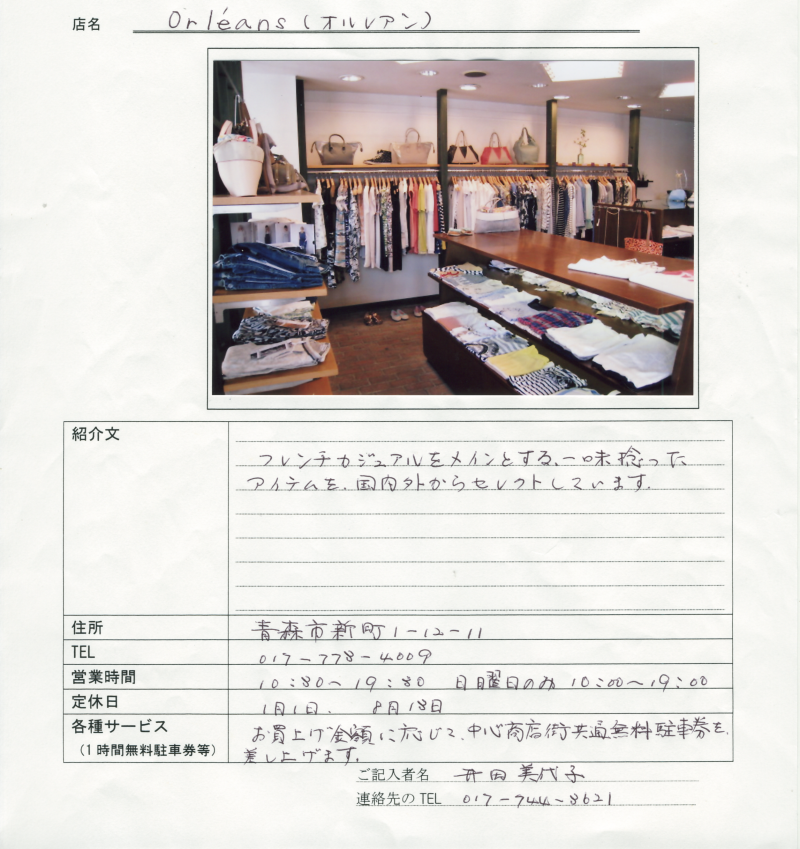 店名 Orléans (オルレアン)
紹介文
フレンチカジュアルをメインとする、一味捻った
アイテムを、国内外からセレクトしています。
住所 青森市新町1-12-11
TEL 017-778-4009
営業時間 10:30～19:30 日曜日のみ 10:00～19:00
定休日 1月1日、 8月18日
各種サービス お買上げ金額に応じて、中心商店街共通無料駐車券を、
(1時間無料駐車券等) 差し上げます。
ご記入者名 井田 美代子
連絡先のTEL 017-744-8621